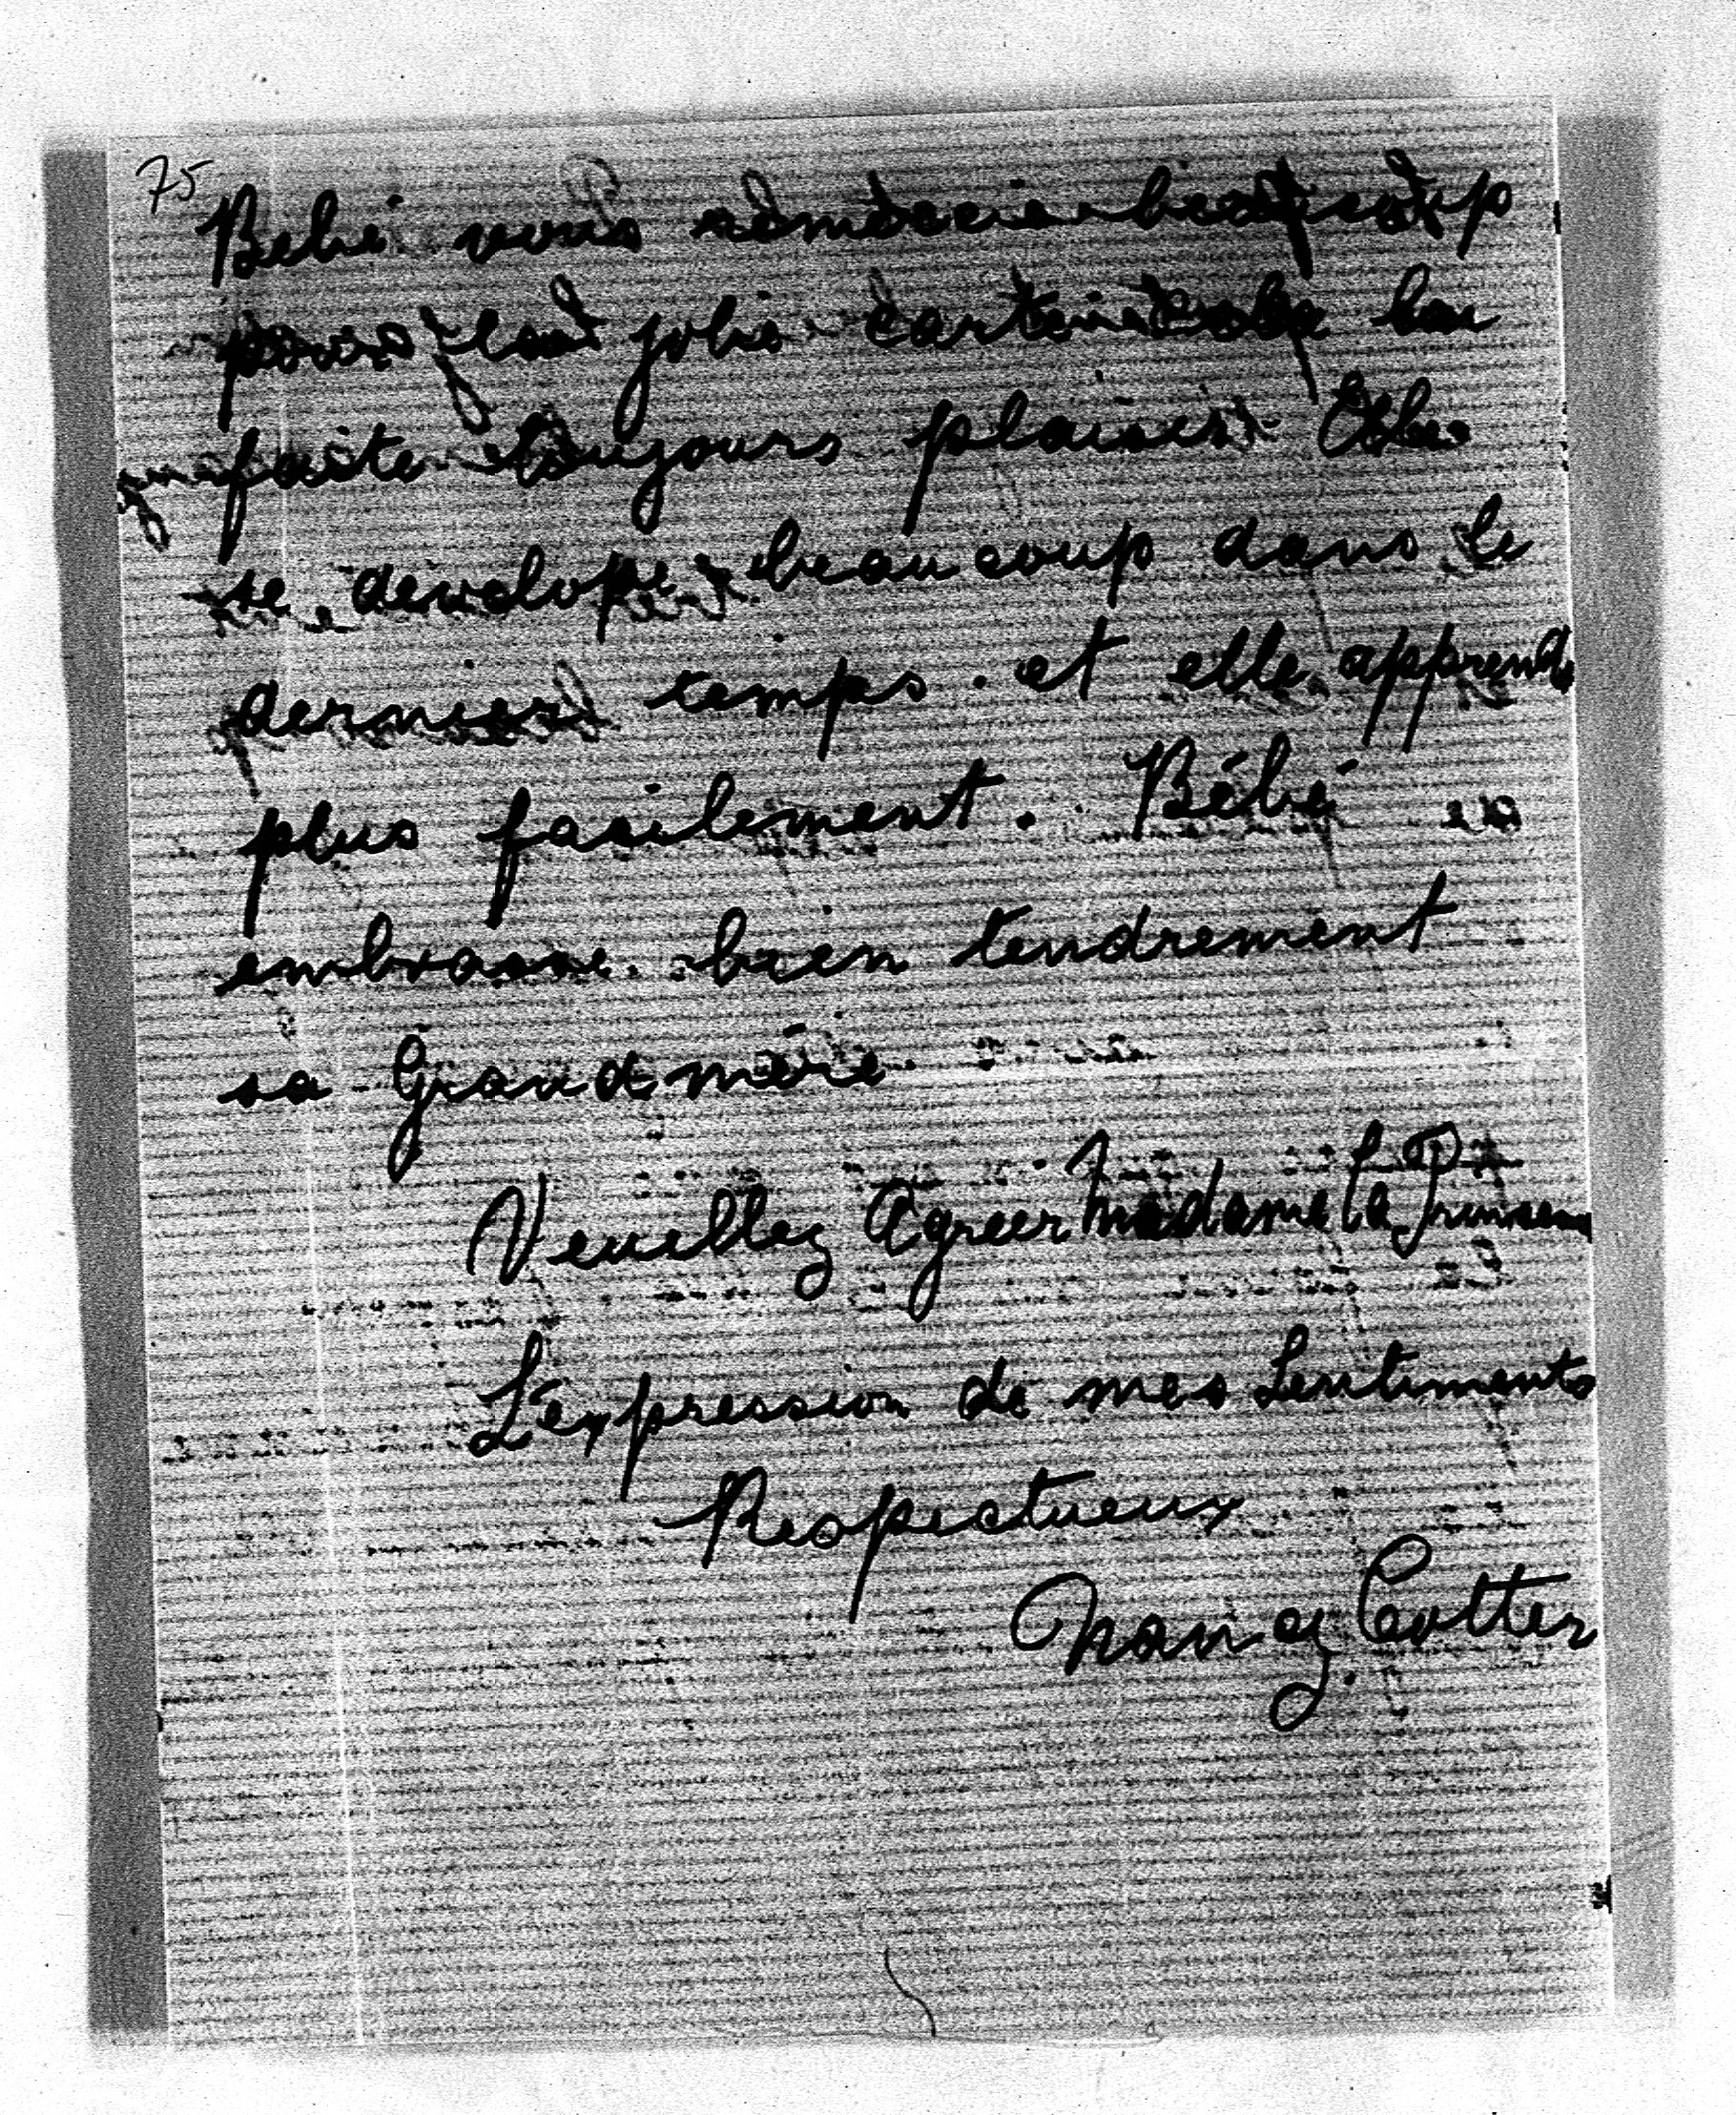 75
Bebé vous remercie beaucoup
pour la jolie carte
faite toujours plaisir. Elle
se develope beaucoup dans le
dernier temps. et elle apprend
plus facilement. Bébé
embrasse bien tendrement
sa Grand mère
Veuillez Agreer Madame La Princesse
L'expression de mes Sentiments
Respectueux
Nancy Cotter